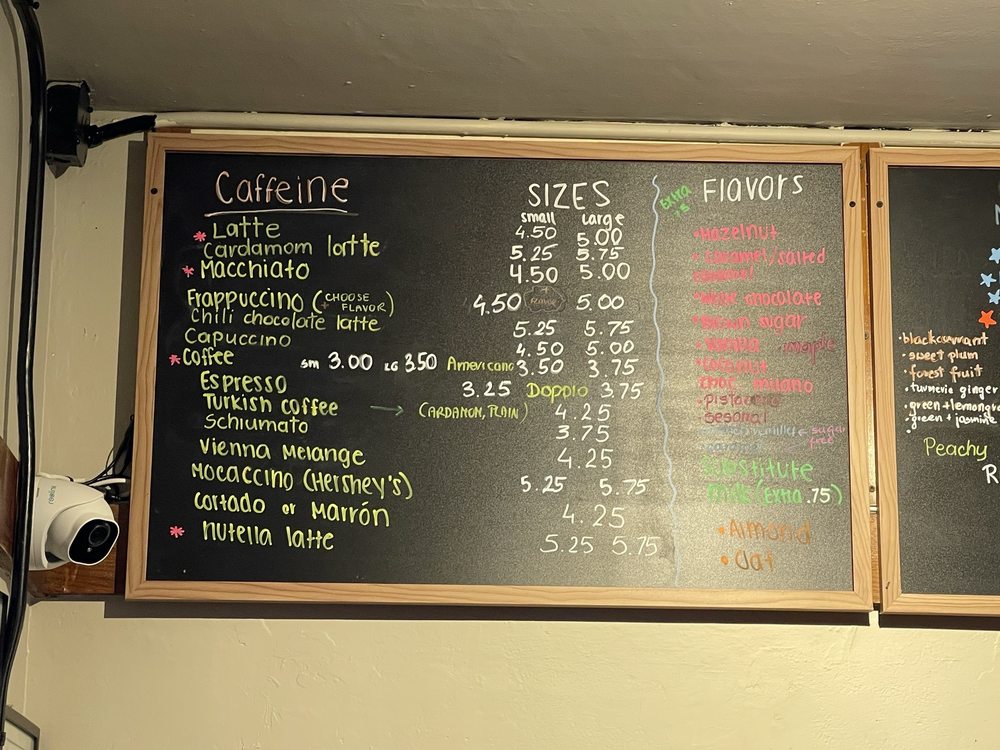 Caffeine
SIZES
small Large
* Latte 4.50 5.00
Cardamom latte 5.25 5.75
* Macchiato 4.50 5.00
Frappuccino (+ CHOOSE FLAVOR) 4.50 + FLAVOR 5.00
Chili chocolate latte 5.25 5.75
Capuccino 4.50 5.00
* Coffee sm 3.00 LG 3.50 Americano 3.50 3.75
Espresso 3.25 Doppio 3.75
Turkish coffee → (CARDAMON, PLAIN) 4.25
Schiumato 3.75
Vienna Melange 4.25
Mocaccino (Hershey's) 5.25 5.75
Cortado or Marrón 4.25
* Nutella latte 5.25 5.75
Extra
FLavors
• Hazelnut
• Caramel/salted
caramel
• White chocolate
• Brown sugar
• Vanilla
• Coconut
• Pistachio
sugar
free
Substitute
Milk (Extra .75)
• Almond
• Oat
• blackcurrant
• sweet plum
• forest fruit
• turmeric ginger
• green + lemongra
• green + jasmine
Peachy
R
reolink